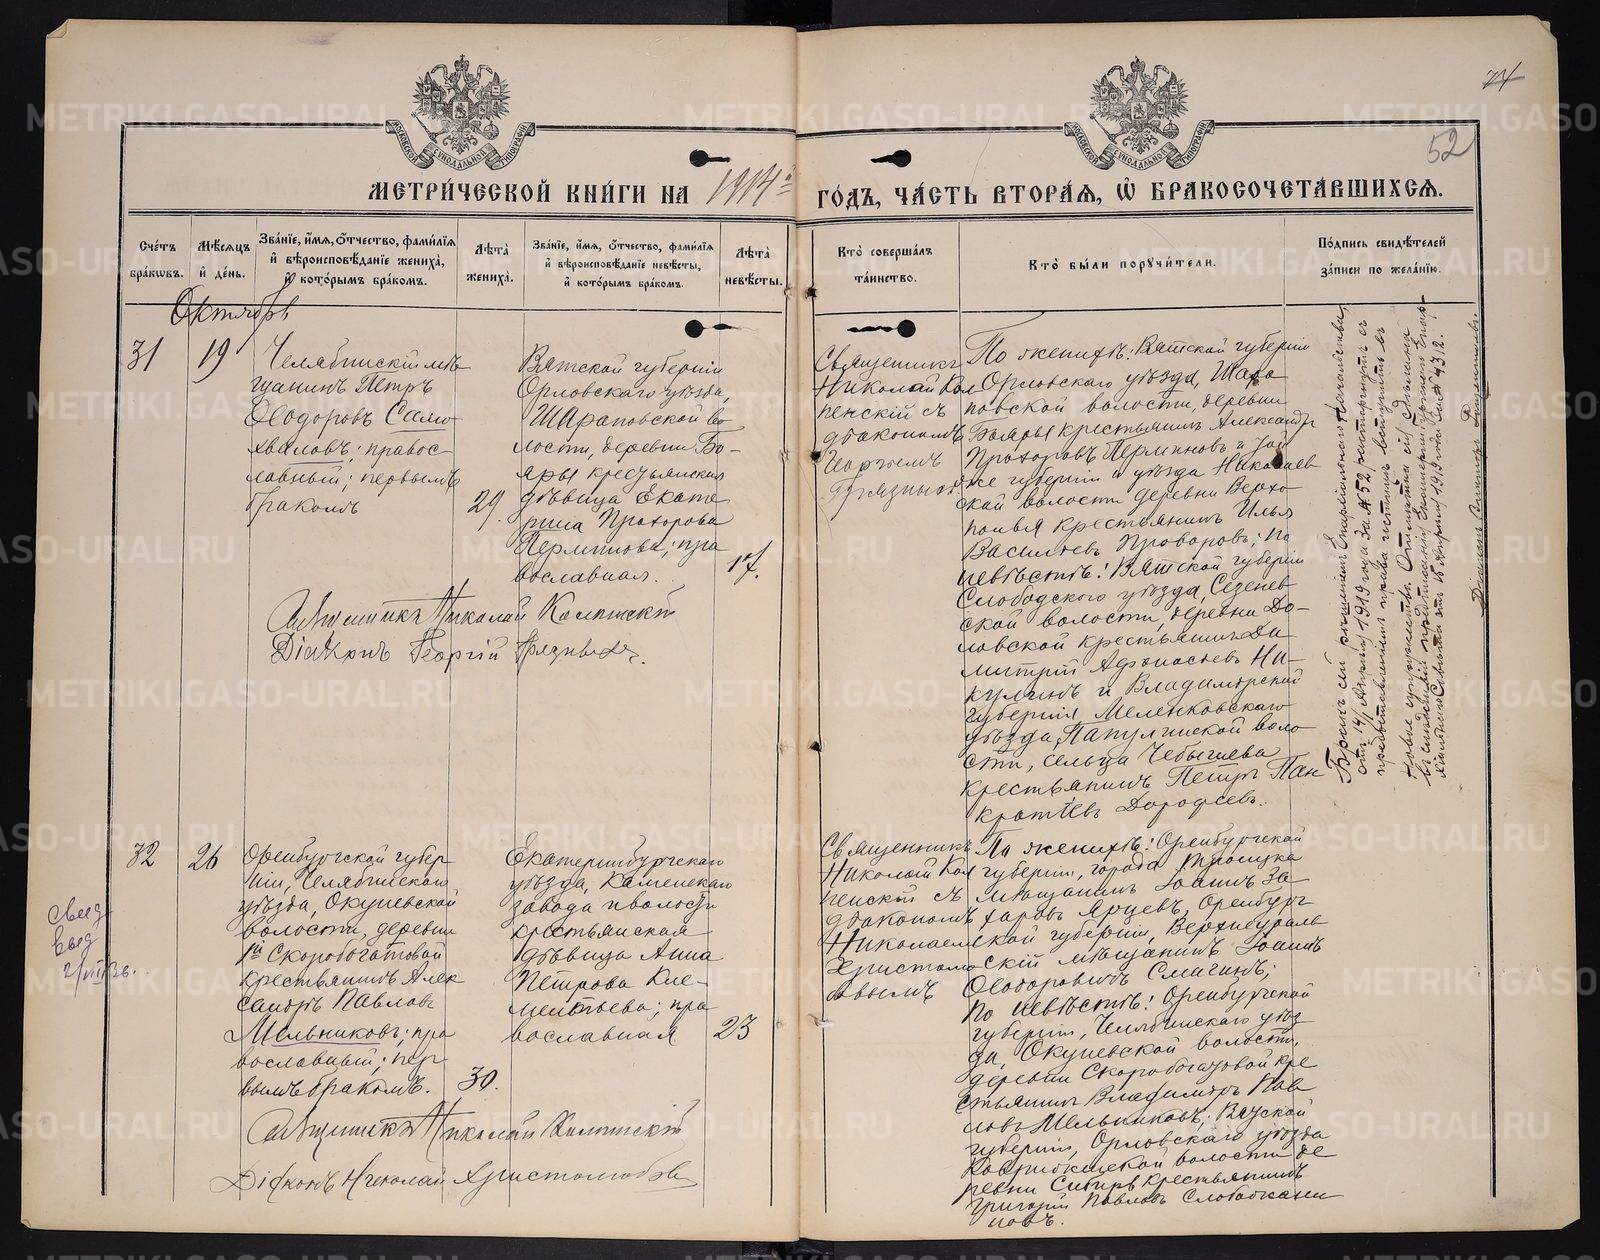 74
52
МОСКОВСКОЙ СУНОДАЛЬНОЙ ТИПОГРАФІИ
МОСКОВСКОЙ СУНОДАЛЬНОЙ ТИПОГРАФІИ
МЕТРИ́ЧЕСКОЙ КНИ́ГИ НА 1914 ГО́ДЪ, ЧА́СТЬ ВТОРА́Я, Ѡ БРАКОСОЧЕТА́ВШИХСЯ.
Сче́тъ бра́кѡвъ.
Мѣ́сяцъ и́ де́нь.
Зва́нїе, и́мя, ѻ́тчество, фами́лїя и́ вѣроисповѣ́данїе жениха̀, и́ кото́рымъ бра́комъ.
Лѣта̀ жениха̀.
Зва́нїе, и́мя, ѻ́тчество, фами́лїя и́ вѣроисповѣ́данїе невѣ́сты, и́ кото́рымъ бра́комъ.
Лѣта̀ невѣ́сты.
Кто̀ соверша́лъ та́инство.
Кто̀ бы́ли порꙋчи́тели.
По́дпись свидѣ́телей за́писи по жела́нїю.
Октябрь
31
19
Челябинскій мѣ
щанинъ Петръ
Ѳеодоровъ Само
хваловъ; правос-
лавный; первымъ
бракомъ
29.
Вятской губерніи
Орловскаго уѣзда,
Шараповской во
лости, деревни Бо-
яры крестьянская
дѣвица Екате
рина Прохорова
Перминова; пра
вославная.
17.
Священникъ
Николай Кол
пенскій съ
діакономъ
Георгіемъ
По женихѣ: Вятской губерніи
Орловскаго уѣзда, Шара
повской волости, деревни
Бояры крестьянинъ Александръ
Прохоровъ Перминовъ и той
же губерніи и уѣзда Николаев
ской волости деревни Верхо
повья крестьянинъ Илья
Васильевъ Проворовъ; по
невѣстѣ: Вятской губерніи
Слободского уѣзда, Сезенев
ской волости, деревни До-
ловской крестьянинъ Ди
митрій Афонасьевъ Ни-
кулинъ и Владимірской
губерніи Меленковскаго
уѣзда, Папулинской воло
сти, сельца Чебышева
крестьянинъ Петръ Пан
кратіевъ Дорофеевъ.
Священникъ Николай
Діаконъ Георгій
Бракъ сей рѣшеніемъ Епархіальнаго Начальства,
отъ 14/ Апрѣля 1919 года за № 52 расторгнутъ съ
предоставленіемъ права вступить въ
новое супружество. Отмѣтка сія сдѣлана
32
26
Оренбургской губер
ніи, Челябинскаго
уѣзда, Окуневской
волости, деревни
1й Скоробогатовой
крестьянинъ Алек
сандръ Павловъ
Мельниковъ; пра
вославный; пер
вымъ бракомъ.
30.
Екатеринбургскаго
уѣзда, Каменскаго
завода и волости
крестьянская
дѣвица Анна
Петрова Кле-
ментьева; пра
вославная
23
Священникъ
Николай Кол
пенскій съ
діакономъ
Николаемъ
Христолю
бовымъ
По женихѣ: Оренбургской
губерніи, города Троицка
мѣщанинъ Іоаннъ За
харовъ Ярцевъ, Оренбург
ской губерніи, Верхнеураль
скій мѣщанинъ Іоаннъ
Ѳеодоровичъ Смагинъ;
По невѣстѣ: Оренбургской
губерніи, Челябинскаго уѣз
да, Окуневской волости,
деревни Скоробогатовой кре
стьянинъ Владиміръ Пав
ловъ Мельниковъ; Вятской
губерніи, Орловскаго уѣзда
волости де
ревни Сибирь крестьянинъ
Григорій Павловъ
новъ.
Священникъ Николай
Діаконъ Николай Христолюбовъ
свид
выд